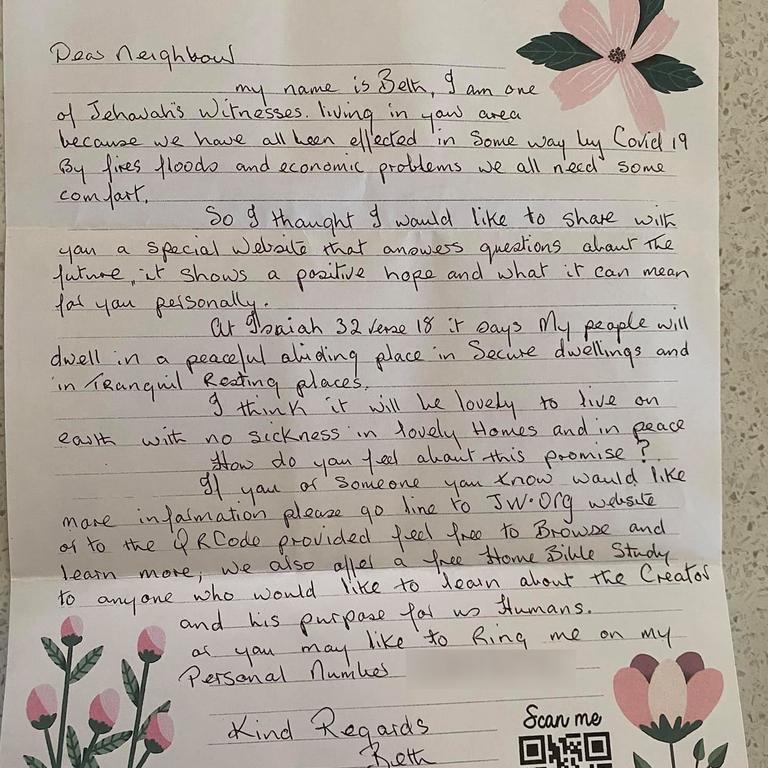 Dear Neighbour
my name is Beth, I am one
of Jehovah's Witnesses. living in your area
because we have all been effected in some way by Covid 19
By fires floods and economic problems we all need some
comfort.
So I thought I would like to share with
you a special Website that answers questions about the
future, it shows a positive hope and what it can mean
for you personally.
At Isaiah 32 verse 18 it says My people will
dwell in a peaceful abiding place in Secure dwellings and
in Tranquil Resting places.
I think it will be lovely to live on
earth with no sickness in lovely Homes and in peace
How do you feel about this promise?
If you or Someone you know would like
more information please go line to JW.Org website
or to the QRCode provided feel free to Browse and
learn more, we also offer a free Home Bible Study
to anyone who would like to learn about the Creator
and his purpose for us Humans.
or you may like to Ring me on my
Personal Number
Kind Regards
Beth
Scan me